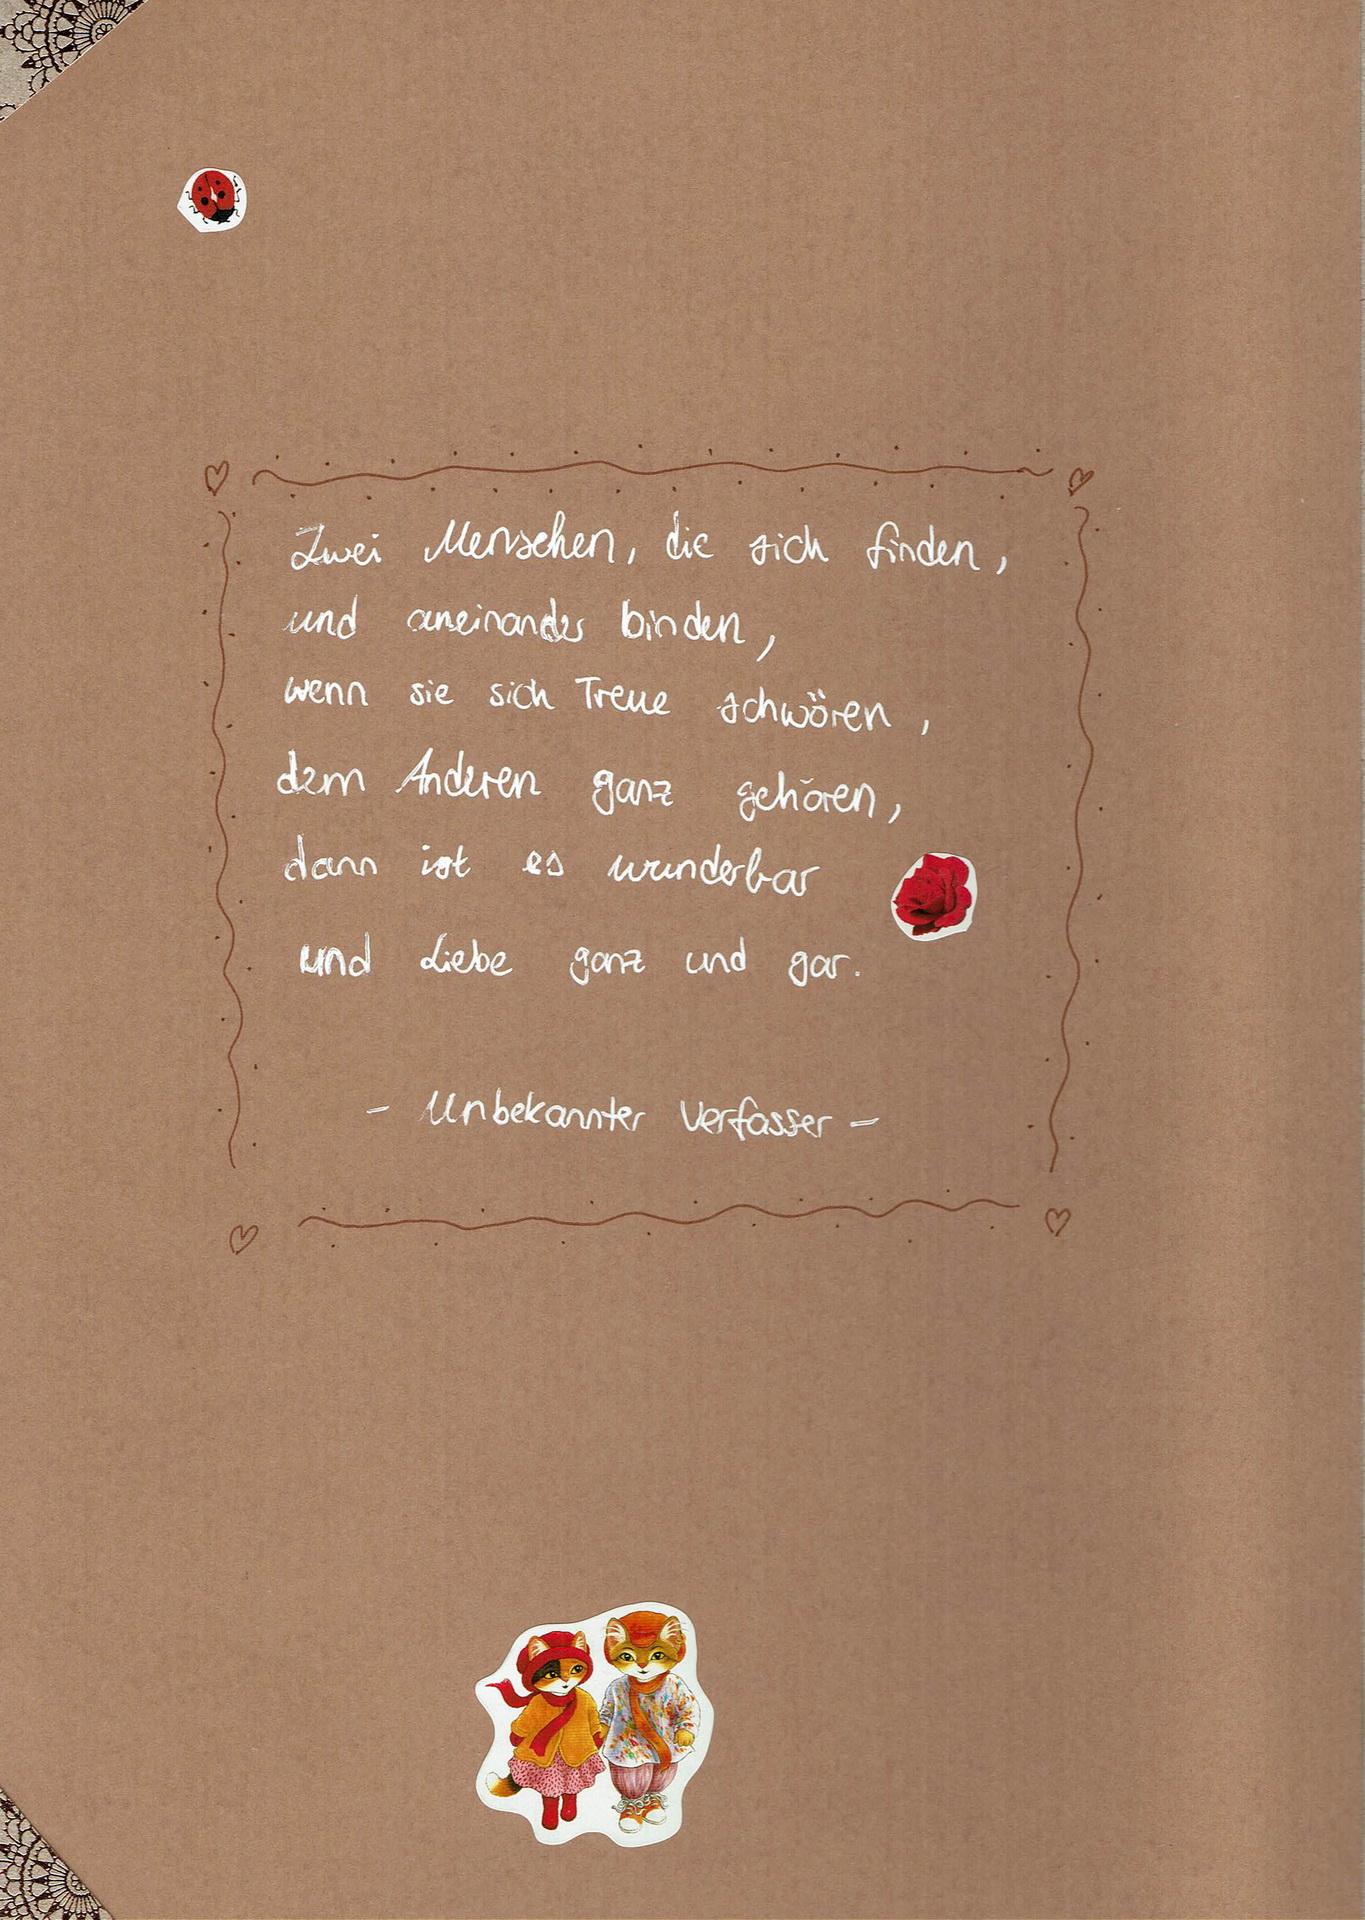 Zwei Menschen, die sich finden,
und aneinander binden,
wenn sie sich Treue schwören,
dem Anderen ganz gehören,
dann ist es wunderbar
und Liebe ganz und gar.
- Unbekannter Verfasser -